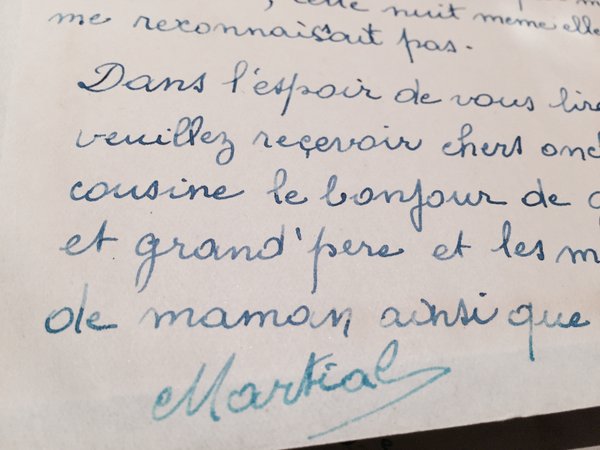 , cette nuit même elle
me rexonnaissait pas.
Dans l'espoir de vous lire
veuillez reçevoir chers onc
cousine le bonjour de g
et grand'père et les m
de maman ainsi que
Martial